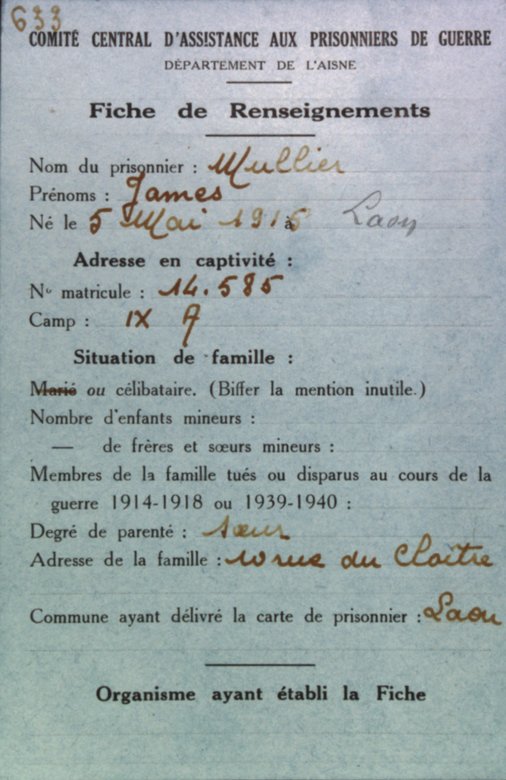 633
COMITÉ CENTRAL D'ASSISTANCE AUX PRISONNIERS DE GUERRE
DÉPARTEMENT DE L'AISNE
Fiche de Renseignements
Nom du prisonnier : Mullier
Prénoms : James
Né le 5 Mai 1915 à Laon
Adresse en captivité :
No matricule : 14.585
Camp : IX A
Situation de famille :
Marié ou célibataire. (Biffer la mention inutile.)
Nombre d'enfants mineurs :
— de frères et sœurs mineurs :
Membres de la famille tués ou disparus au cours de la
guerre 1914-1918 ou 1939-1940 :
Degré de parenté : sœur
Adresse de la famille : 10 rue du Cloître
Commune ayant délivré la carte de prisonnier : Laon
Organisme ayant établi la Fiche